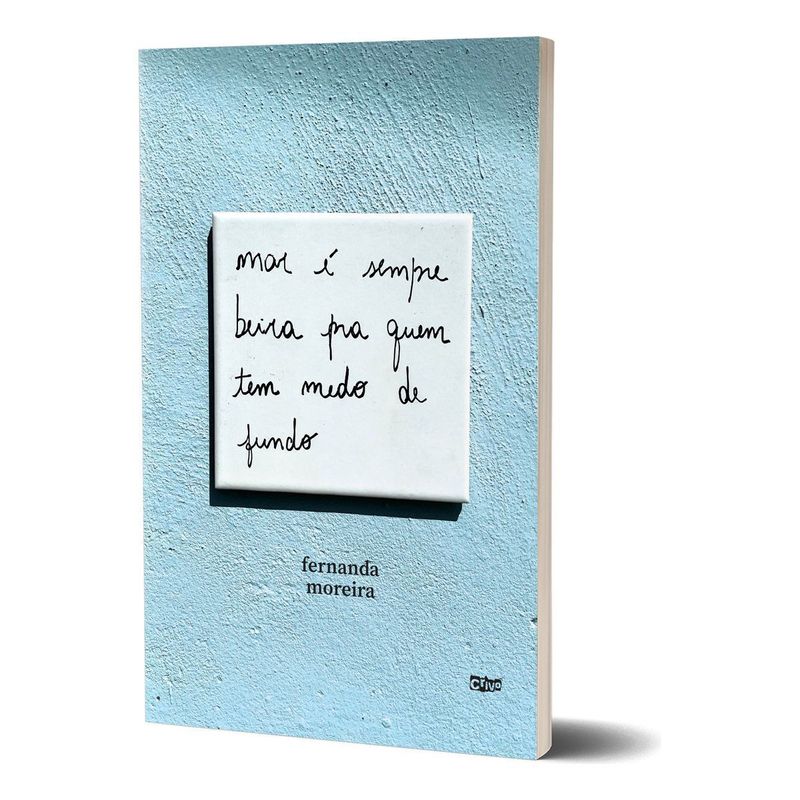 mar é sempre
beira pra quem
tem medo de
fundo
fernanda
moreira
crivo